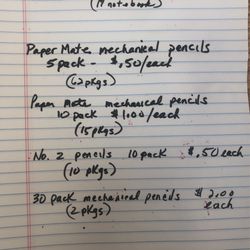 (19 notebooks)
Paper Mate mechanical pencils
5 pack - $.50/each
(62 pkgs)
Paper Mate mechanical pencils
10 pack $1.00/each
(15 pkgs)
No. 2 pencils 10 pack $.50 each
(10 pkgs)
30 pack mechanical pencils $2.00
(2 pkgs) each